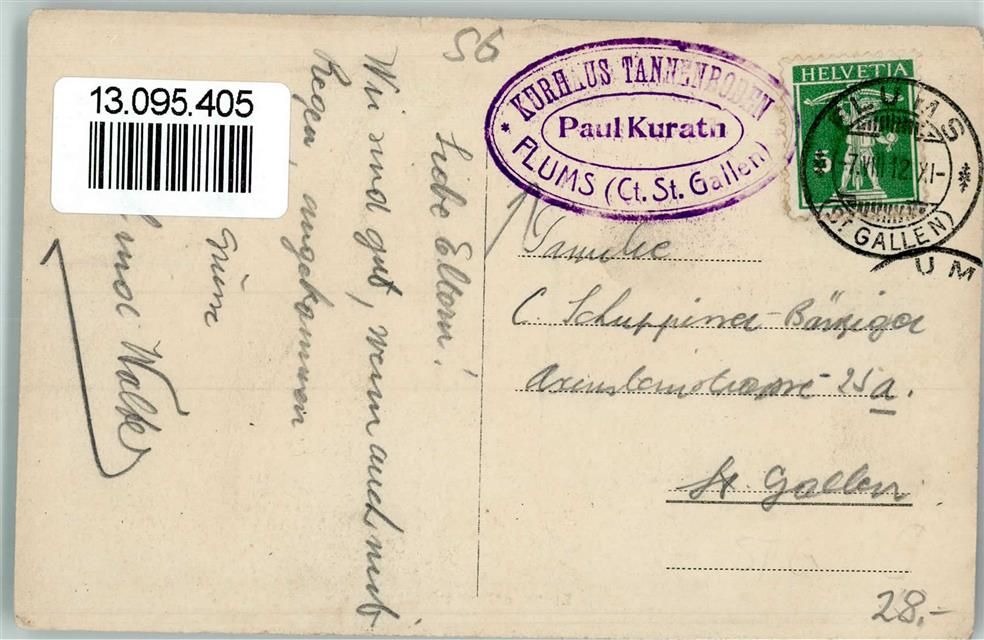 13.095.405
95
Liebe Eltern!
Wir sind gut, wenn auch mit
Regen, angekommen
Walter
* KURHAUS TANNENBODEN
Paul Kurath
FLUMS (Ct. St. Gallen)
HELVETIA
5
FLUMS
-7.VIII.12.XI-
(ST. GALLEN)
UM
Familie
C. Schuppisser-Bänziger
25a.
St. Gallen
28.-